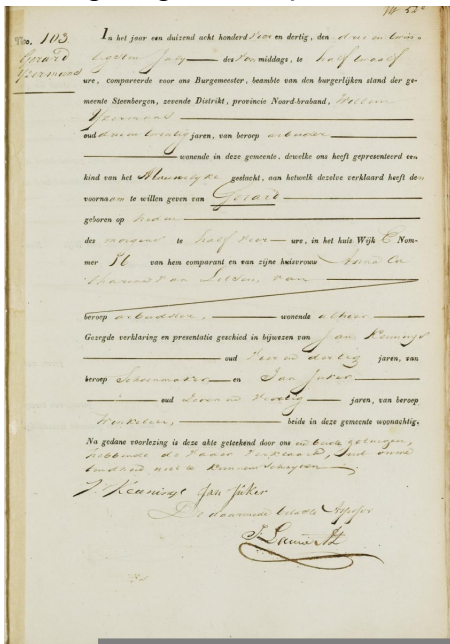 No. 103
Gerard
IJzermans
In het jaar een duizend acht honderd vier en dertig, den drie en twin-
tigsten July des voor middags, te half twaalf
ure, compareerde voor ons Burgemeester, beambte van den burgerlijken stand der ge-
meente Steenbergen, zevende Distrikt, provincie Noord-braband, Willem
IJzermans
oud drie en twintig jaren, van beroep arbeider
wonende in deze gemeente, dewelke ons heeft gepresenteerd een
kind van het Mannelyke geslacht, aan hetwelk dezelve verklaard heeft den
voornaam te willen geven van Gerard
geboren op heden
des morgens te half vier ure, in het huis Wijk C Nom-
mer 56 van hem comparant en van zijne huisvrouw Anna Ca
tharina van
beroep arbeidster, wonende alhier
Gezegde verklaring en presentatie geschied in bijwezen van Jan Kennings
oud vier en dertig jaren, van
beroep Schoenmaker en Jan Juker
oud zeven en veertig jaren, van beroep
Winkelier, beide in deze gemeente woonachtig,
Na gedane voorlezing is deze akte geteekend door ons en beide getuigen,
hebbende de vader verklaard,
niet te kunnen schryven
Jan Juker
De daarmede belaste Assessor